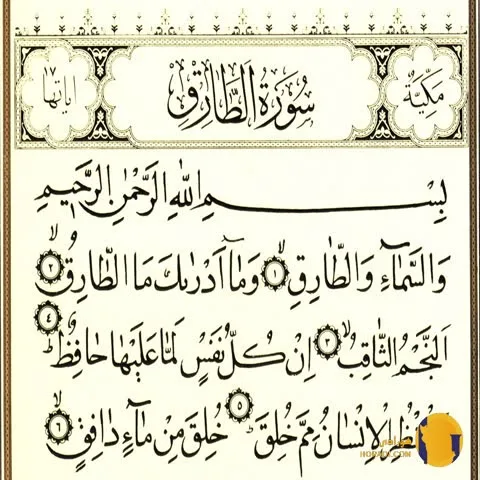 مكية
سورة الطارق
اياتها ١٧
بِسْمِ اللّٰهِ الرَّحْمٰنِ الرَّحِيمِ
وَالسَّمَٓاءِ وَالطَّارِقِ ﴿١﴾ وَمَٓا اَدْرٰيكَ مَا الطَّارِقُ ﴿٢﴾
اَلنَّجْمُ الثَّاقِبُ ﴿٣﴾ اِنْ كُلُّ نَفْسٍ لَمَّا عَلَيْهَا حَافِظٌ ﴿٤﴾
الْاِنْسَانُ مِمَّ خُلِقَ ﴿٥﴾ خُلِقَ مِنْ مَٓاءٍ دَافِقٍ ﴿٦﴾